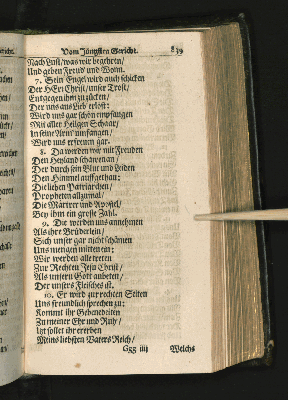 Vom Jüngsten Gericht. 839
Nach Lust / was wir begehren /
Und geben Freud und Wonn.
7. Sein Engel wird auch schicken
Der HErr Christ / unser Trost /
Entgegen ihm zu zücken /
Der uns aus Lieb erlöst:
Wird uns gar schön empfangen
Mit aller Heiligen Schaar /
In seine Arm umfangen /
Wird uns erfreuen gar.
8. Da werden wir mit Freuden
Den Heyland schauen an /
Der durch sein Blut und Leiden
Den Himmel auffgethan:
Die lieben Patriarchen /
Propheten allzumal /
Die Märterer und Apostel /
Bey ihm ein grosse Zahl.
9. Die werden uns annehmen
Als ihre Brüderlein /
Sich unser gar nicht schämen
Uns mengen mitten ein:
Wir werden alle treten
Zur Rechten Jesu Christ /
Als unsern Gott anbeten /
Der unsers Fleisches ist.
10. Er wird zur rechten Seiten
Uns freundlich sprechen zu:
Kommt ihr Gebenedeiten
Zu meiner Ehr und Ruh /
Itzt sollet ihr ererben
Meins liebsten Vaters Reich /
Ggg iiij Welchs